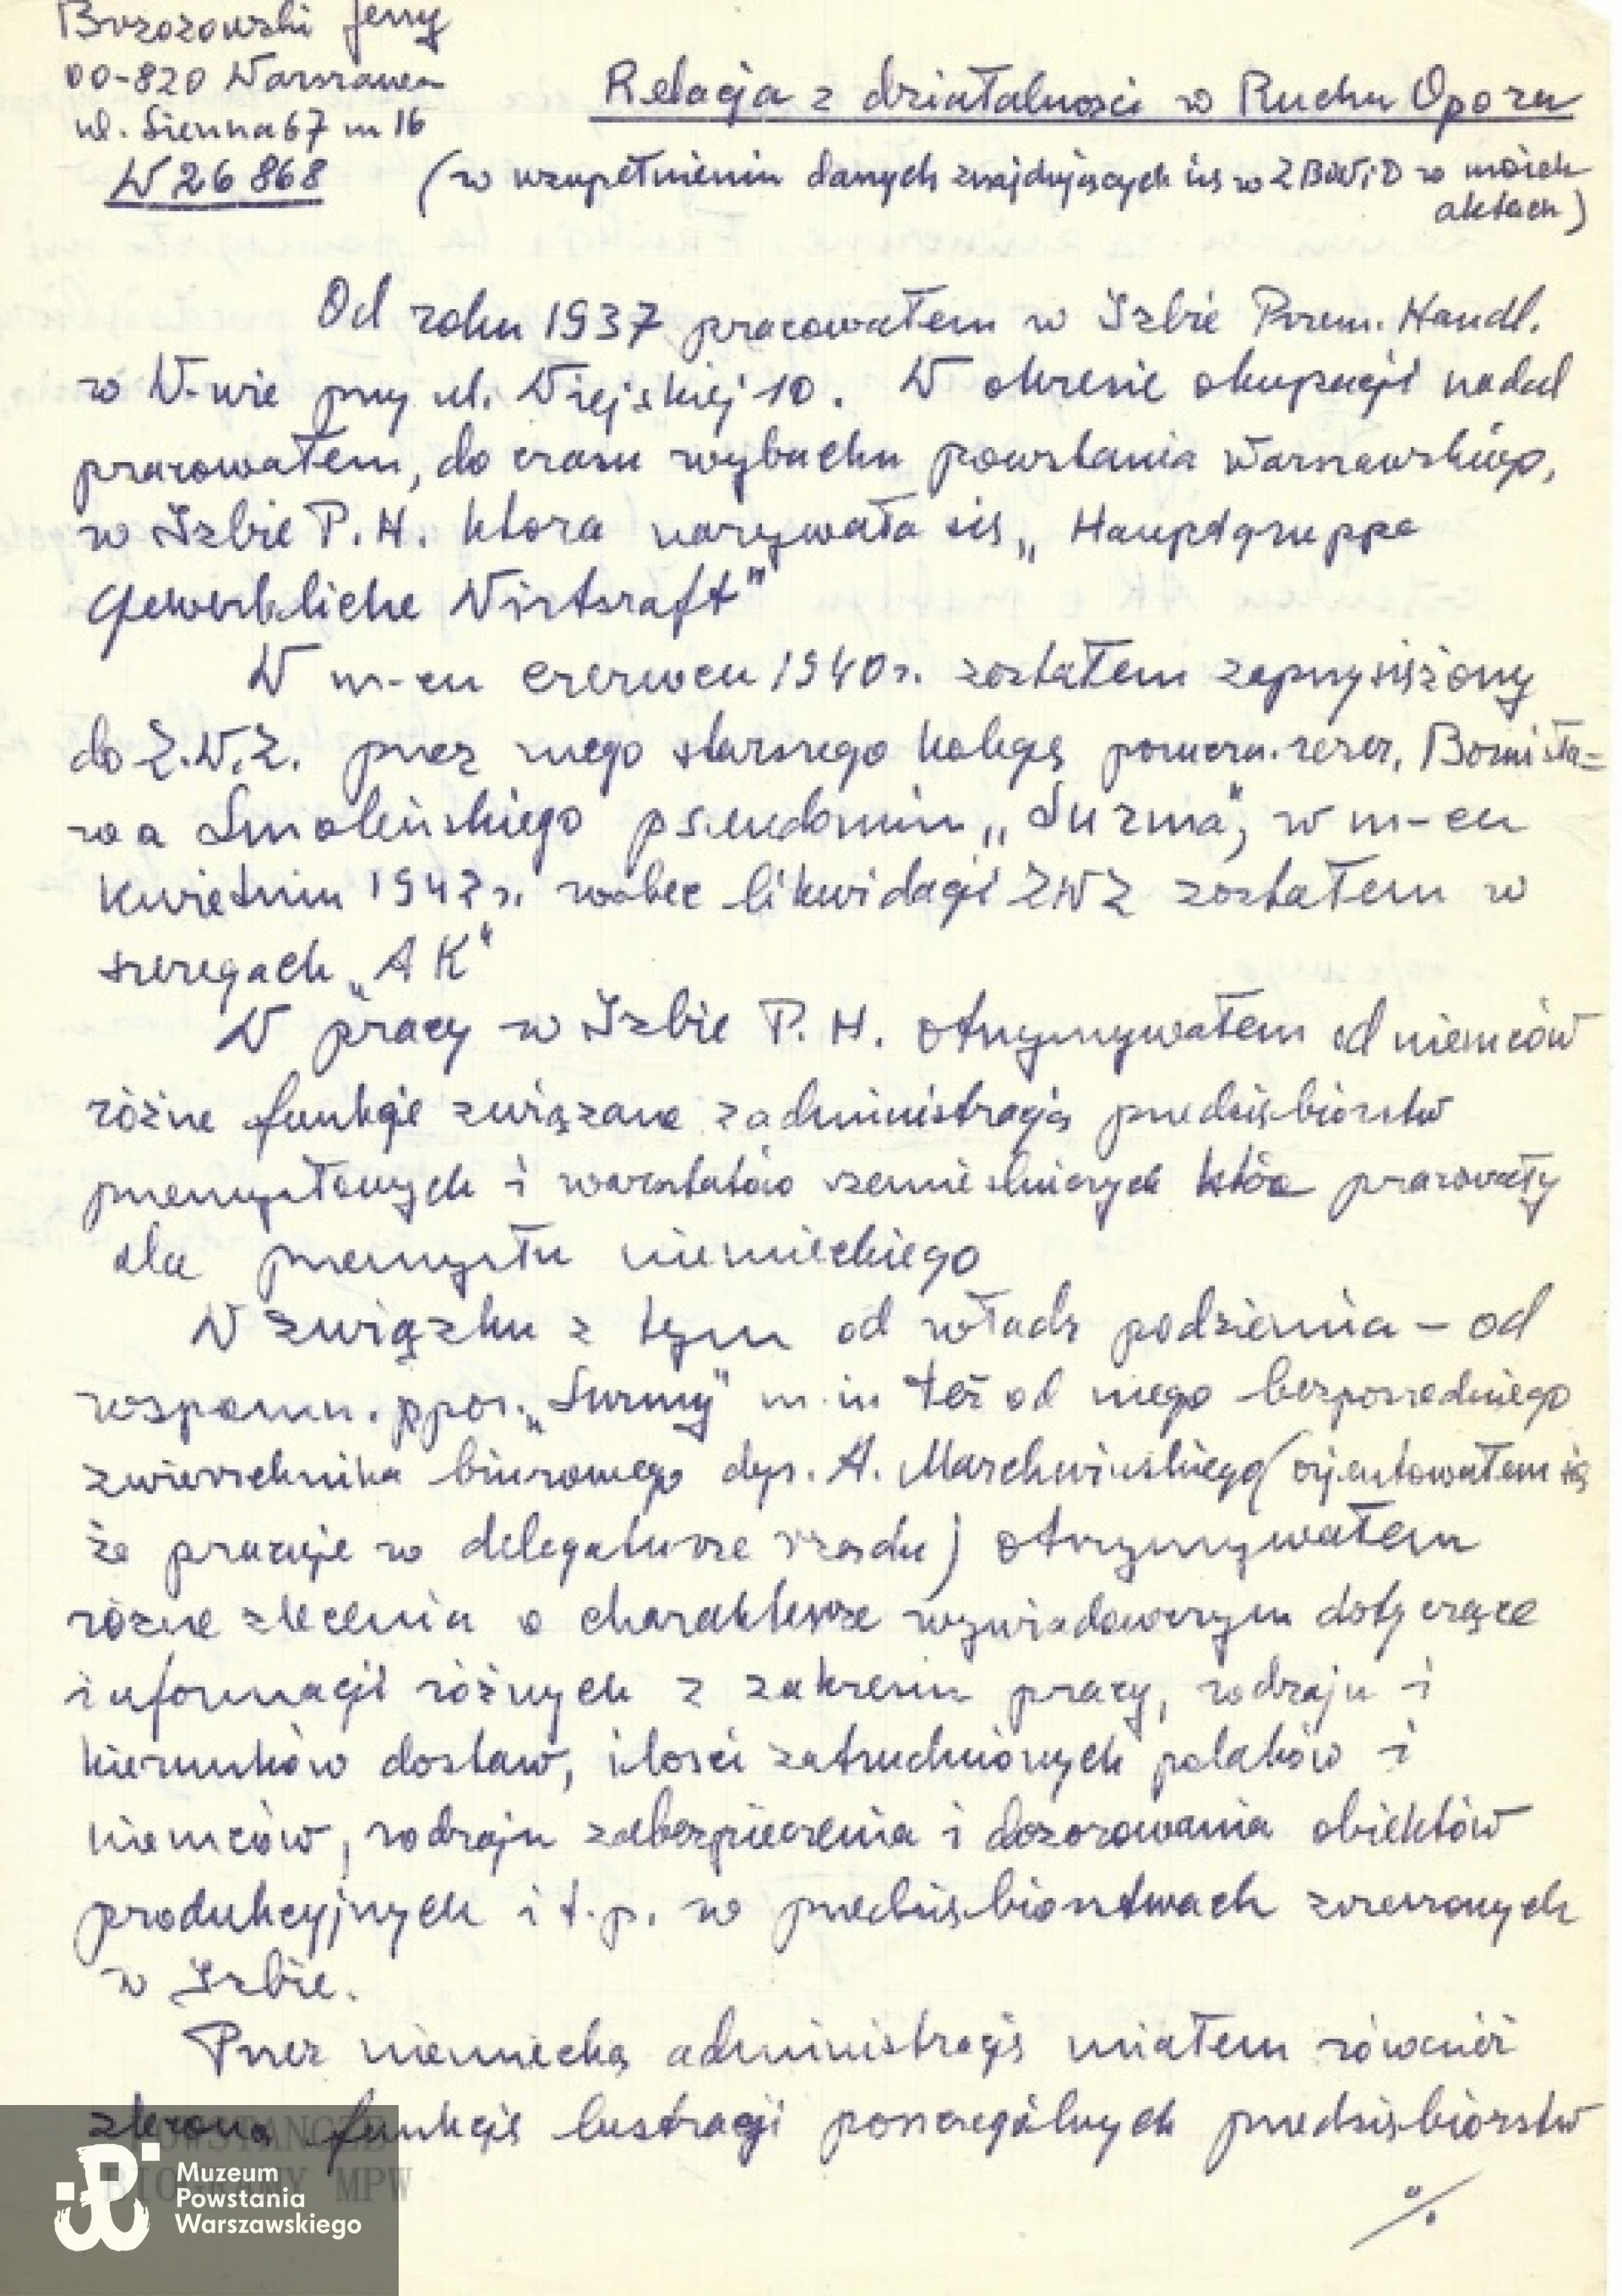 Brzozowski Jerzy
00-820 Warszawa
ul. Sienna 67 m 16
W 26 868
Relacja z działalności w Ruchu Oporu
(w uzupełnieniu danych znajdujących się w ZBoWiD w moich
aktach)
Od roku 1937 pracowałem w Izbie Przem. Handl.
w W-wie przy ul. Wiejskiej 10. W okresie okupacji nadal
pracowałem, do czasu wybuchu powstania Warszawskiego,
w Izbie P. H. która nazywała się „Hauptgruppe
Gewerbliche Wirtsraft"
W m-cu czerwcu 1940 r. zostałem zaprzysiężony
do Z.W.Z. przez mego starszego kolegę poruczn. rezer. Bronisła=
wa Smoleńskiego pseudonim „Surma", w m-cu
kwietniu 1942 r. wobec likwidacji ZWZ zostałem w
szeregach „AK"
W pracy w Izbie P. H. otrzymywałem od niemców
różne funkcje związane z administracją przedsiębiorstw
przemysłowych i warsztatów rzemieślniczych które pracowały
dla przemysłu niemieckiego
W związku z tym od władz podziemia – od
wspomn. ppor. „Surmy" m. in też od mego bezpośredniego
zwierzchnika biurowego dyr. A. Marchwińskiego (orjentowałem się
że pracuje w delegaturze rządu) otrzymywałem
różne zlecenia o charakterze wywiadowczym dotyczące
informacji różnych z zakresu pracy, rodzaju i
kierunków dostaw, ilości zatrudnionych polaków i
niemców, rodzaju zabezpieczenia i dozorowania obiektów
produkcyjnych i t.p. w przedsiębiorstwach zrzeszonych
w Izbie.
Przez niemiecką administrację miałem również
zleconą funkcję lustracji poszczególnych przedsiębiorstw
·/.
POWSTAŃCZE
BIOGRAMY MPW
Muzeum
Powstania
Warszawskiego